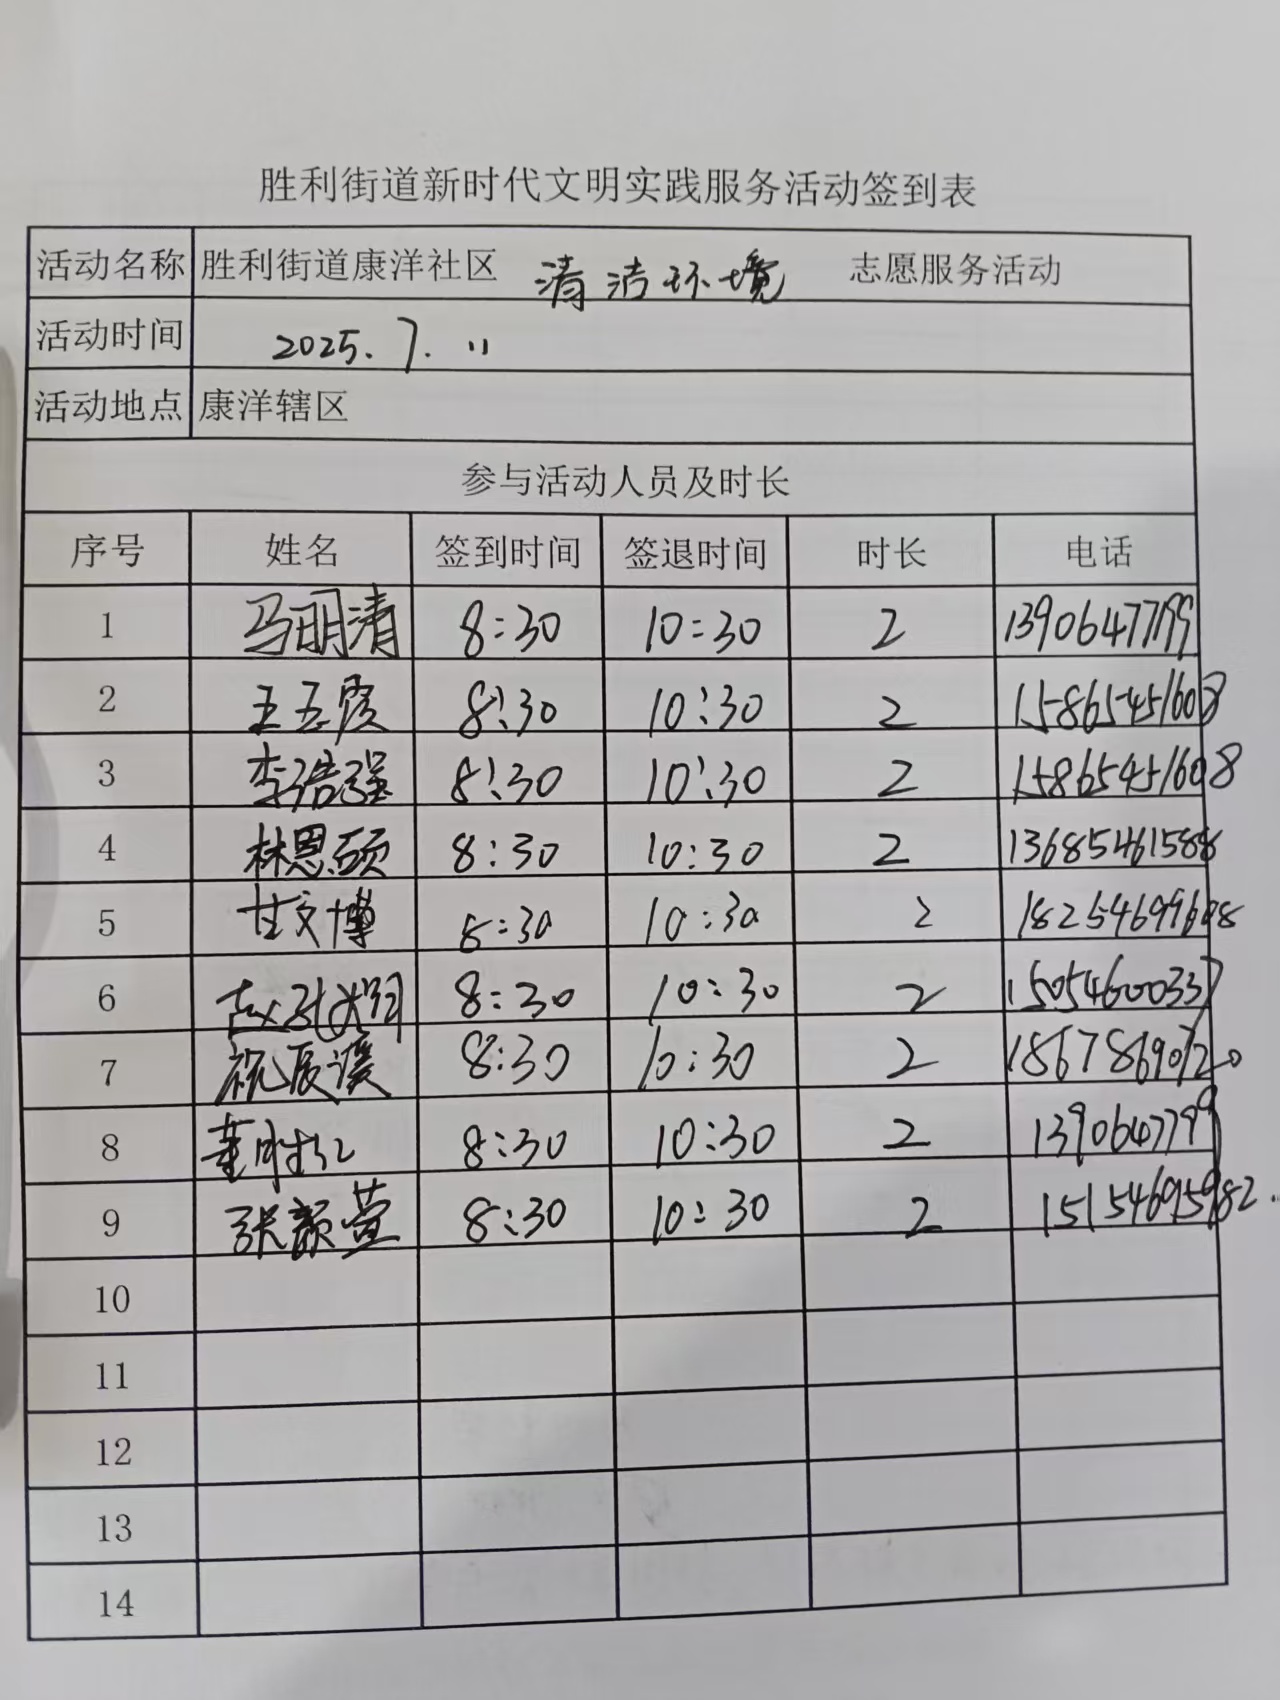 胜利街道新时代文明实践服务活动签到表
活动名称 胜利街道康洋社区 清洁环境 志愿服务活动
活动时间 2025.7.11
活动地点 康洋辖区
参与活动人员及时长
序号 姓名 签到时间 签退时间 时长 电话
1 马明清 8:30 10:30 2 13906477199
2 王玉霞 8:30 10:30 2 15865451608
3 李浩强 8:30 10:30 2 15865451608
4 林恩硕 8:30 10:30 2 13685461588
5 甘文博 8:30 10:30 2 18254699608
6 8:30 10:30 2 15054600337
7 祝辰谟 8:30 10:30 2 18678690720
8 董胜红 8:30 10:30 2 1390647799
9 张颜萱 8:30 10:30 2 15154695982
10
11
12
13
14